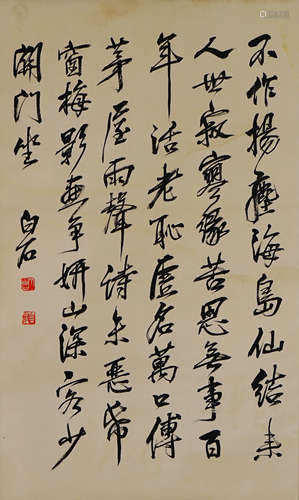 不作揚塵海島仙結來
人世寂寥緣苦思無事百
年活老恥虛名萬口傳
茅屋雨聲詩未惡紙
窗梅影畫爭妍山深客少
開門坐 白石